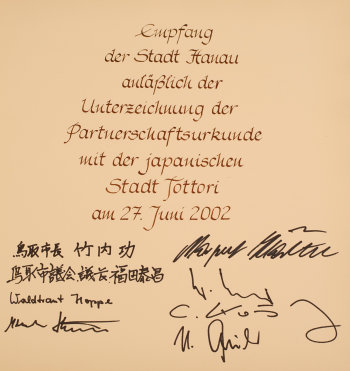 Empfang
der Stadt Hanau
anläßlich der
Unterzeichnung der
Partnerschaftsurkunde
mit der japanischen
Stadt Tottori
am 27. Juni 2002
鳥取市長 竹内 功
鳥取市議会議長 福田泰昌
Waltraut Hoppe